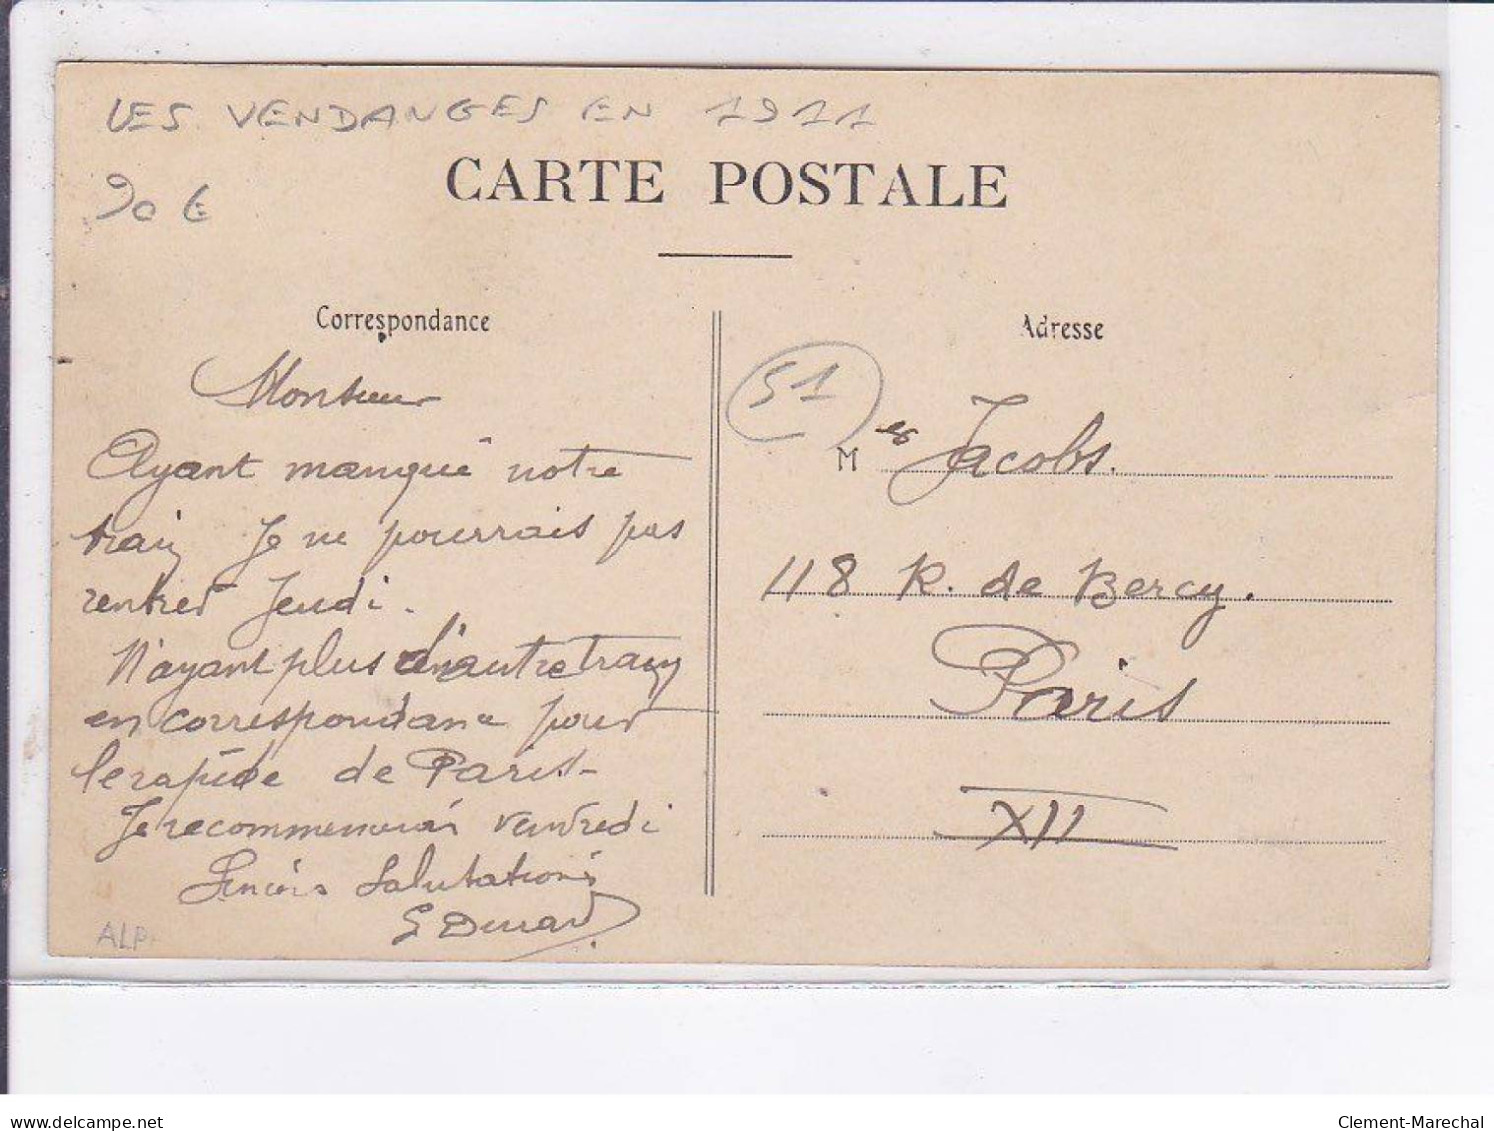 LES VENDANGES EN 1911
90 €
CARTE POSTALE
Correspondance
Adresse
Monsieur
Ayant manqué notre
train Je ne pourrais pas
rentrer Jeudi.
N'ayant plus d'autre train
en correspondance pour
le rapide de Paris-
Je recommencerai vendredi
Sincères Salutations
ALP
51
M es Jacobs.
118 R. de Bercy.
Paris
XII
delcampe.net
Clement-Marechal